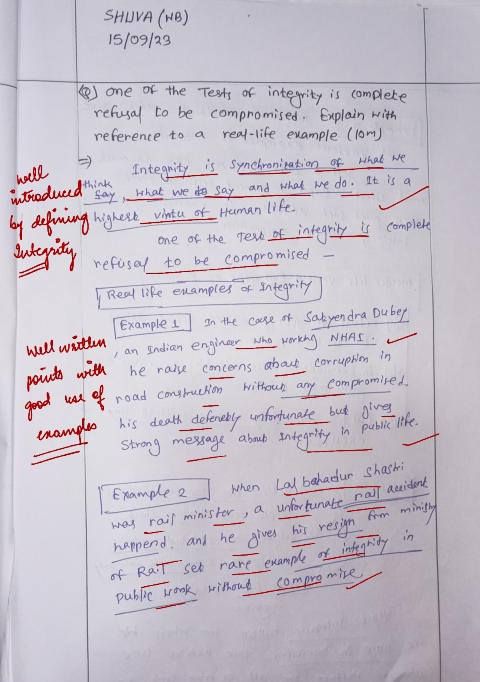 SHUVA (NB)
15/09/23
Q) one of the Tests of integrity is complete
refusal to be compromised. Explain with
reference to a real-life example (10m)
⇒) Integrity is synchronisation of what we
think
say, what we do say and what we do. It is a
highest virtu of Human life.
one of the Test of integrity is complete
refusal to be compromised —
Real life examples of Integrity
Example 1 In the case of Satyendra Dubey
, an Indian engineer who working NHAI.
he raise concerns about corruption in
road construction without any compromised.
his death defenebly unfortunate but gives
strong message about integrity in public life.
Example 2 when Lal bahadur shastri
was rail minister, a unfortunate rail accident
happend. and he gives his resign from ministry
of Rail set rare example of integrity in
public work without compromise
Well
introduced
by defining
Integrity
Well written
points with
good use of
examples